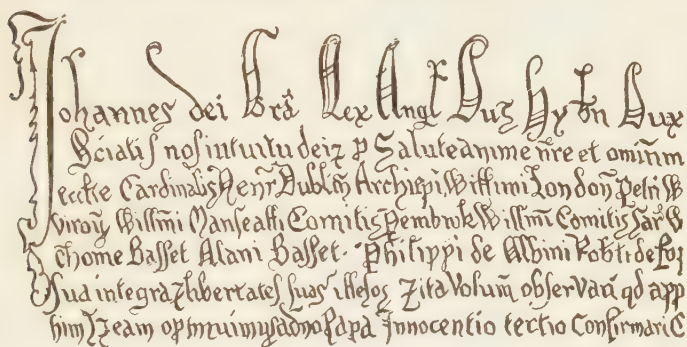 Johannes dei Grā Rex Angl Dūs Hybn̄ Dux
Sciatis nos intuitu dei ⁊ ꝑ Salute anime n̄re et omīnm
eccl̄se Cardinalis Henr̄ Dublin̄ Archiep̄i Will̄imi London̄ Petri W
Will̄mi Marescalli Comitis Pembrok Will̄m̄ Comitis Sar̄ W
Thome Basset Alani Basset. Philippi de Albini Rob̄ti de
Sua integra ⁊ libertates suas illesas ⁊ ita Volum̄ observari qd̄ app
⁊ eam Papa Innocentio tertio Confirmari